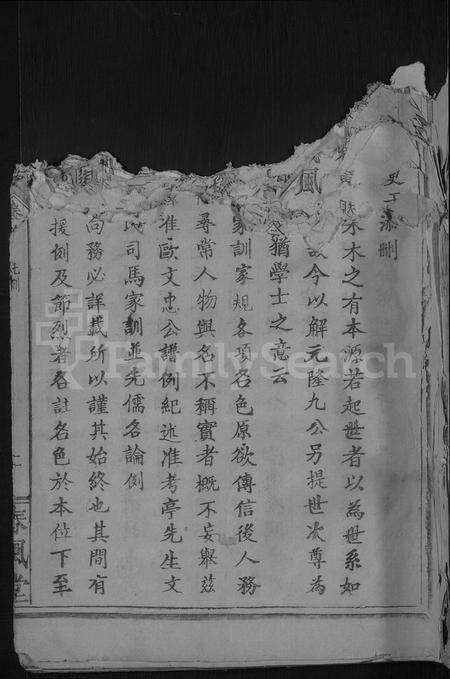 添刪
水木之有本源若起世者以為世系如
今以解元隆九公另提世次尊為
猶學士之意云
家訓家規各項名色原欲傳信後人務
尋常人物與名不稱實者概不妄舉茲
准歐文忠公譜例紀述准考亭先生文
司馬家訓並先儒名論例
向務必詳載所以謹其始終也其間有
援例及節烈者各註名色於本位下至
春風堂
FamilySearch